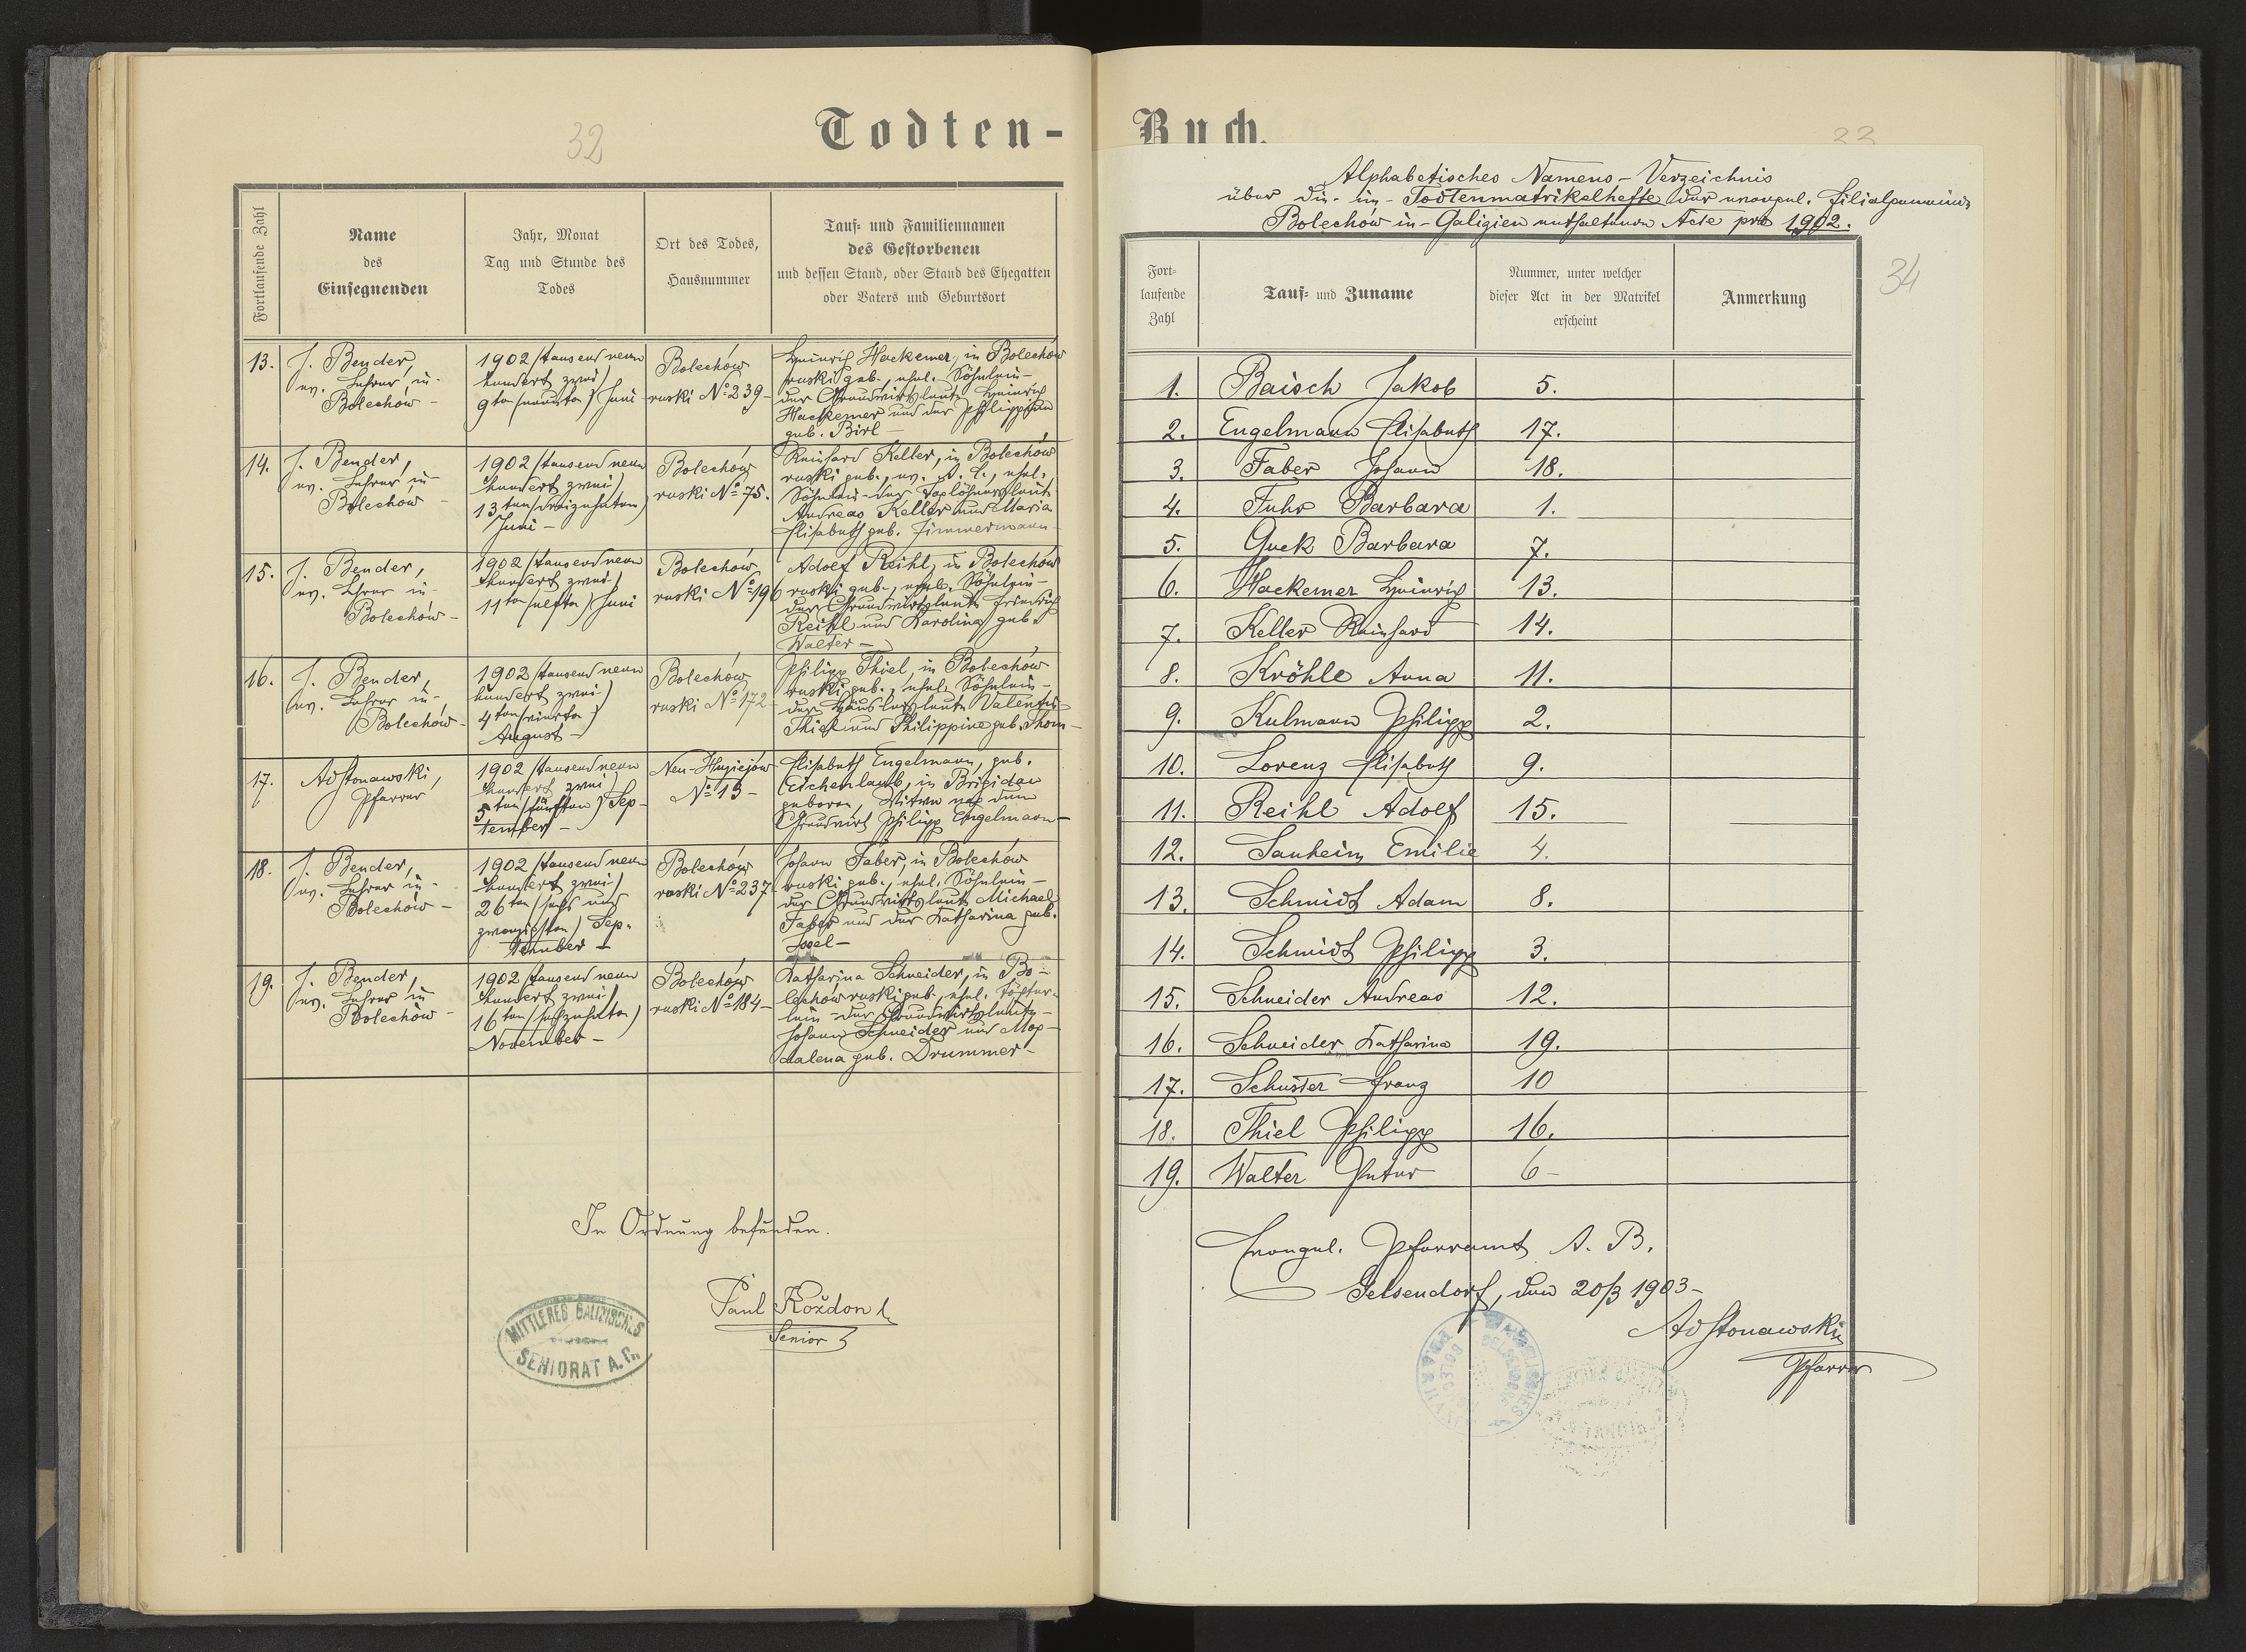 32
Todten-
Fortlaufende Zahl
Name
des
Einsegnenden
Jahr, Monat
Tag und Stunde des
Todes
Ort des Todes,
Hausnummer
Tauf- und Familiennamen
des Gestorbenen
und dessen Stand, oder Stand des Ehegatten
oder Vaters und Geburtsort
13.
J. Bender,
ev. Lehrer in
Bolechów -
1902 (tausend neun
hundert zwei)
9ten (neunten) Juni
Bolechów
ruski No 239-
Heinrich Hackemer, in Bolechów
ruski geb., ehel. Söhnlein
der Grundwirtsleute Heinrich
Hackemer und der Philippine
geb. Birl -
14.
J. Bender,
ev. Lehrer in
Bolechów -
1902 (tausend neun
hundert zwei)
13ten (dreizehnten)
Juni -
Bolechów
ruski No 75.
Reinhard Keller, in Bolechów
ruski geb., ev. A. C., ehel.
Söhnlein der Taglöhnersleute
Andreas Keller und Maria
Elisabeth geb. Zimmermann
15.
J. Bender,
ev. Lehrer in
Bolechów -
1902 (tausend neun
hundert zwei)
11ten (elften) Juni
Bolechów
ruski No 196
Adolf Reihl, in Bolechów
ruski geb., ehel. Söhnlein
der Grundwirtsleute Friedrich
Reihl und Karolina geb.
Walter -
16.
J. Bender,
ev. Lehrer in
Bolechów -
1902 (tausend neun
hundert zwei)
4ten (vierten)
August -
Bolechów
ruski No 172-
Philipp Thiel, in Bolechów
ruski geb., ehel. Söhnlein
der Häuslersleute Valentin
Thiel und Philippine geb. Thom-
17.
Ad Stonawski,
Pfarrer
1902 (tausend neun
hundert zwei)
5ten (fünften) Sep-
tember -
Neu-Huziejów
No 13 -
Elisabeth Engelmann, geb.
Eichenlaub, in Brigidau
geboren, Witwe nach dem
Grundwirt Philipp Engelmann -
18.
J. Bender,
ev. Lehrer in
Bolechów -
1902 (tausend neun
hundert zwei)
26ten (sechs und
zwanzigsten) Sep-
tember -
Bolechów
ruski No 237
Johann Faber, in Bolechów
ruski geb., ehel. Söhnlein
der Grundwirtsleute Michael
Faber und der Katharina geb.
19.
J. Bender,
ev. Lehrer in
Bolechów -
1902 (tausend neun
hundert zwei)
16ten (sechzehnten)
November -
Bolechów
ruski No 184-
Katharina Schneider, in Bo-
lechów ruski geb., ehel. Töchter-
lein der Grundwirtsleute
Johann Schneider und Mag-
dalena geb. Drummer -
In Ordnung befunden.
Paul Kożdon
Senior
MITTLERES GALIZISCHES
SENIORAT A. C.
Buch.
33
Alphabetisches Namens-Verzeichnis
über die im Todtenmatrikelhefte der evangel. Filialgemeinde
Bolechów in Galizien enthaltenen Acte pro 1902.
34
Fort-
laufende
Zahl
Tauf- und Zuname
Nummer, unter welcher
dieser Act in der Matrikel
erscheint
Anmerkung
1. Baisch Jakob 5.
2. Engelmann Elisabeth 17.
3. Faber Johann 18.
4. Fuhr Barbara 1.
5. Guck Barbara 7.
6. Hackemer Heinrich 13.
7. Keller Reinhard 14.
8. Kröhle Anna 11.
9. Kulmann Philipp 2.
10. Lorenz Elisabeth 9.
11. Reihl Adolf 15.
12. Sauheim Emilie 4.
13. Schmidt Adam 8.
14. Schmidt Philipp 3.
15. Schneider Andreas 12.
16. Schneider Katharina 19.
17. Schuster Franz 10
18. Thiel Philipp 16.
19. Walter Peter 6-
Evangel. Pfarramt A. B.
Gelsendorf, den 20/3 1903-
Ad Stonawski
Pfarrer